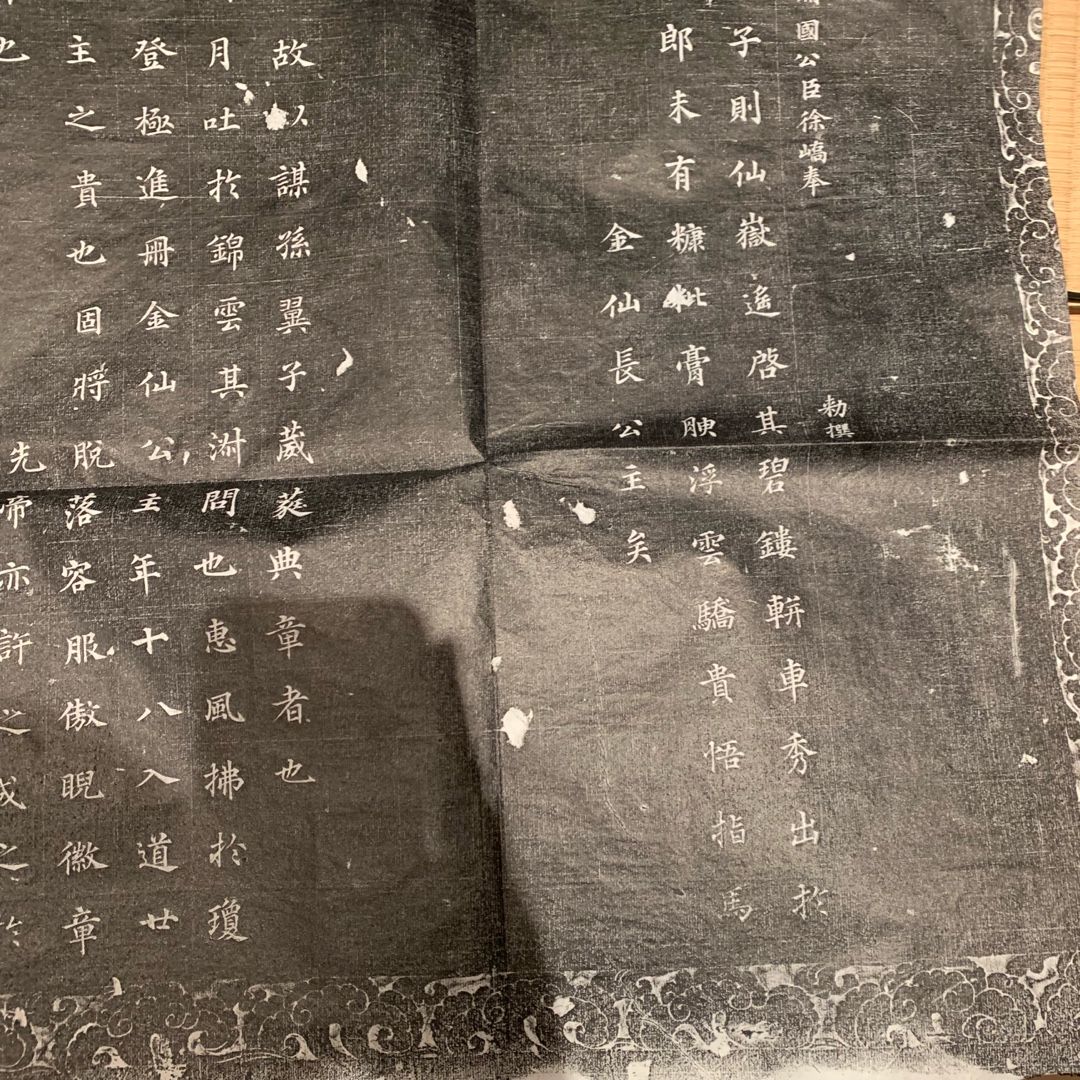 國公臣徐嶠奉 勑撰
子則仙嶽遙啓其碧鏤軿車秀出於
郎未有糠粃膏腴浮雲驕貴悟指馬
金仙長公主矣
故以謀孫翼子葳蕤典章者也
月吐於錦雲其淋問也惠風拂於瓊
登極進冊金仙公主年十八入道廿
主之貴也固將脫落容服傲睨徽章
也 先帝亦許之成之於